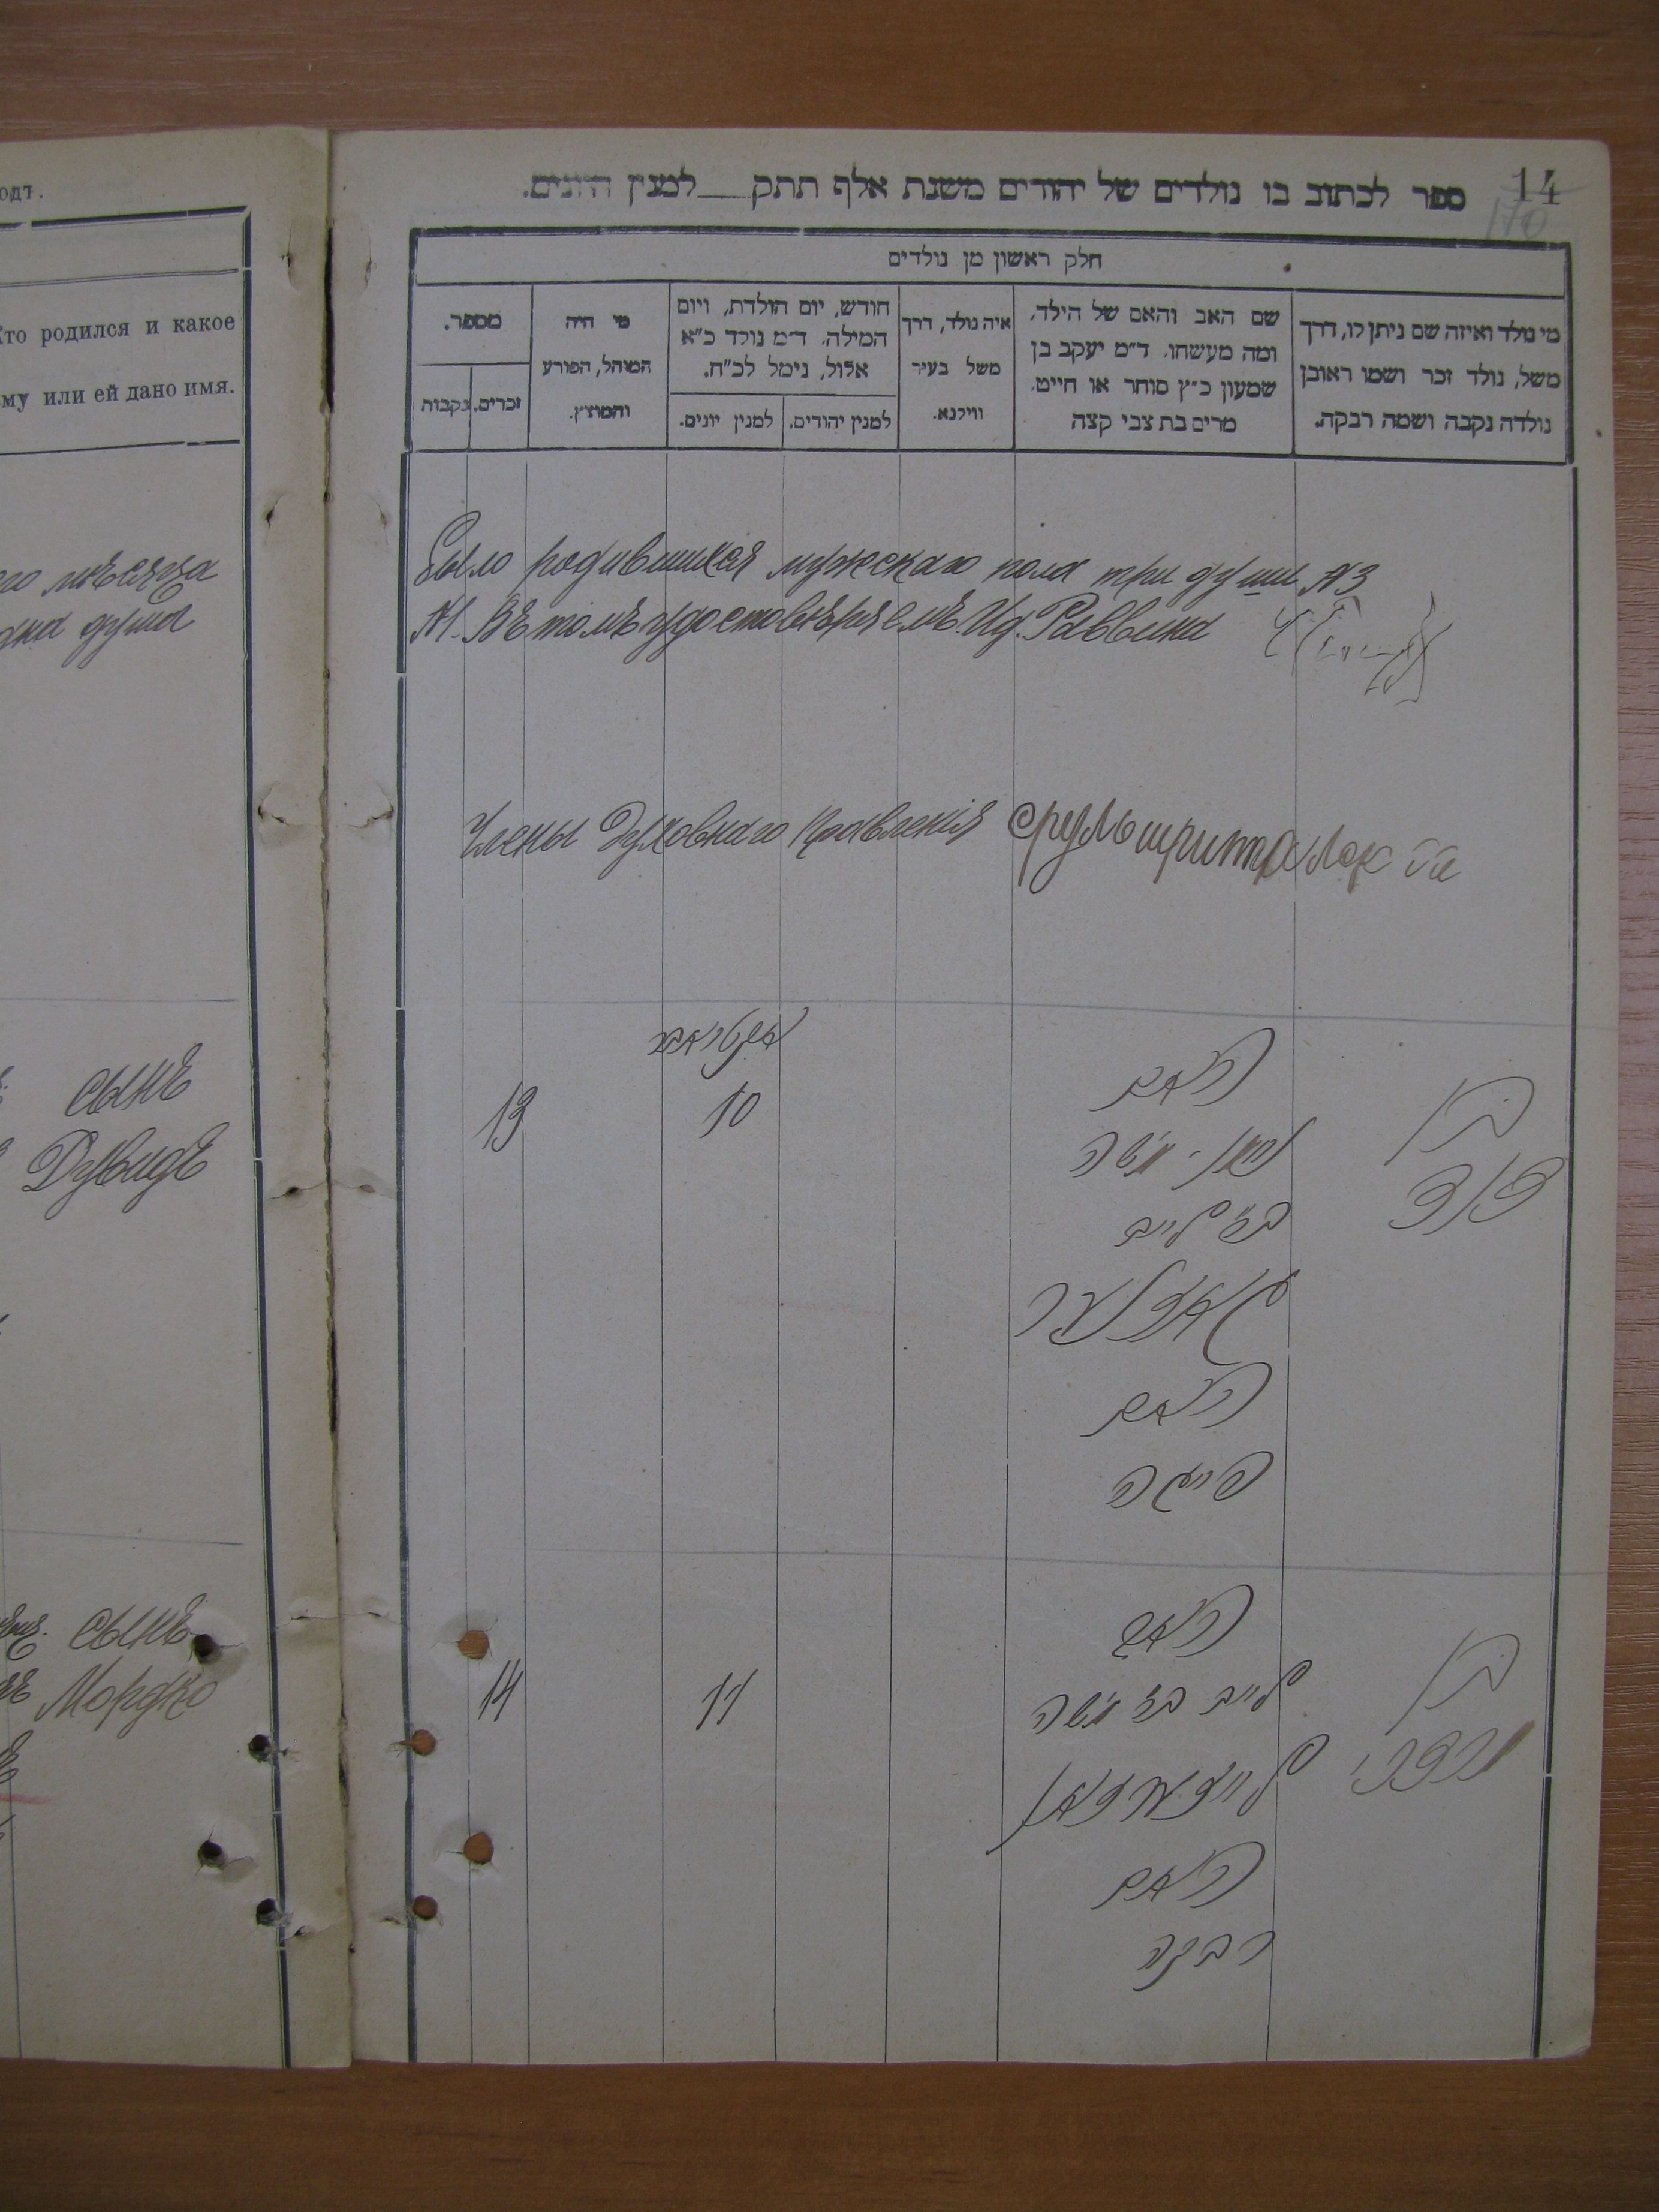 одъ.
Кто родился и какое
ему или ей дано имя.
мѣсяца
душа
сынъ
Дувидъ
сынъ
Мордко
14
170
ספר לכתוב בו נולדים של יהודים משנת אלף תתק___למנין היונים.
חלק ראשון מן נולדים
מי נולד ואיזה שם ניתן לו, דרך
משל, נולד זכר ושמו ראובן
נולדה נקבה ושמה רבקה.
שם האב והאם של הילד,
ומה מעשהו. ד״מ יעקב בן
שמעון כ״ץ סוחר או חייט,
מרים בת צבי קצה
איה נולד, דרך
משל בעיר
ווילנא.
חודש, יום הולדת, ויום
המילה. ד״מ נולד כ״א
אלול, נימל לכ״ח.
למנין יהודים.
למנין יונים.
מי היה
המוהל, הפורע
והמוצץ.
מספר.
זכרים.
נקבות
Было родившихся мужскаго пола три души №3
№1. Въ томъ удостовѣряемъ. Ид. Раввина
Члены Духовнаго Правленія сруль
אקטיאבר
13
10
בן
דוד
האב
משה
בר לייב
האם
חיה
14
11
בן
מרדכי
האב
לייב בר משה
האם
רבקה